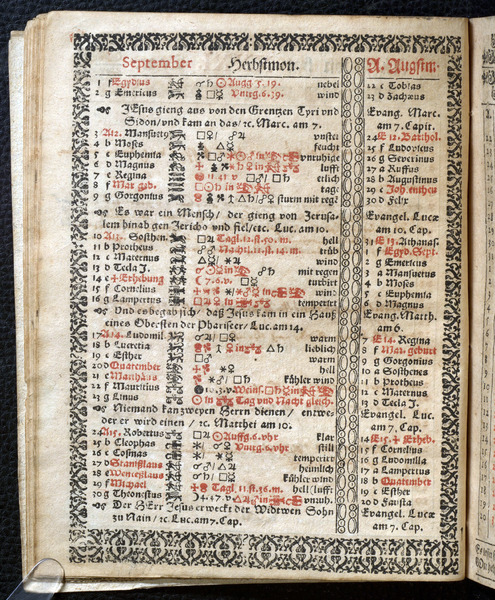 September Herbstmon. A. Augstm.
1 f Egydius ☌ ♄ ☉ Auffg 5.19. nebel 22 c Tobias
2 g Emericus Vnterg.6.39. wind 23 d Zachæus
JEsus gieng aus von den Grentzen Tyri vnd Evang. Marc.
Sidon/ und kam an das/ ꝛc. Marc. am 7. am 7. Capit.
3 A12. Mansuety vnstet 24 E 12. Barthol.
4 b Moses feucht 25 f Ludovicus
5 c Euphemia vnruhige 26 g Severinus
6 d Magnus lufft 27 a Ruffus
7 e Regina trüb 28 b Augustinus
8 f Mar. geb. tage 29 c Joh. entheu
9 g Gorgonius sturm mit regẽ 30 d Felix
Es war ein Mensch/ der gieng von Jerusa- Evangel. Lucæ
lem hinab gen Jericho vnd fiel/ etc. Luc. am 10. am 10. Cap.
10 A13. Sosthen. Tagl. 12. st. 50. m. hell 31 E 13. Athanas.
11 b Protheus Nachtl. 11. st. 14. m. trüb 1 f Egyd. Sept.
12 c Maternus wind 2 g Emericus
13 d Tecla J. mit regen 3 a Mansuetus
14 e ✝ Erhebung turbirt 4 b Moses
15 f Cornelius wind 5 c Euphemia
16 g Lampertus temperirt 6 d Magnus
Vnd es begab sich/ daß Jesus kam in ein Hauß Evang. Matth.
eines Obersten der Phariseer/ Luc. am 14. am 6.
17 A14. Ludomil. warm 7 E 14. Regina
18 b Lucretia lieblich 8 f Mar. geburt
19 c Esther warm 9 g Gorgonius
20 d Quatember hell 10 a Sosthenes
21 e Matthæus kühler wind 11 b Protheus
22 f Mauritius 12 c Maternus
23 g Linus Tag vnd Nacht gleich. 13 d Tecla J.
Niemand kan zweyen Herrn dienen/ entwe- Evangel. Luc.
der er wird einen/ ꝛc. Matthei am 10. am 7. Cap.
24 A15. Robertus Auffg. 6. vhr klar 14 E 15. ✝ Erheb.
25 b Cleophas Vnterg. 6. vhr still 15 f Cornelius
26 c Cosmas temperirt 16 g Ludomilla
27 d Stanißlaus heimlich 17 a Lampertus
28 e Wenceßlaus kühler wind 18 b Quatember
29 f Michael Tagl. 11. st. 16. m. hell/lufft 19 c Esther
30 g Theonestus vnruh. 20 d Fausta
Der HErr Jesus erweckt der Widtwen Sohn Evangel. Lucæ
zu Nain/ ꝛc. Luc. am 7. Cap. am 7. Cap.